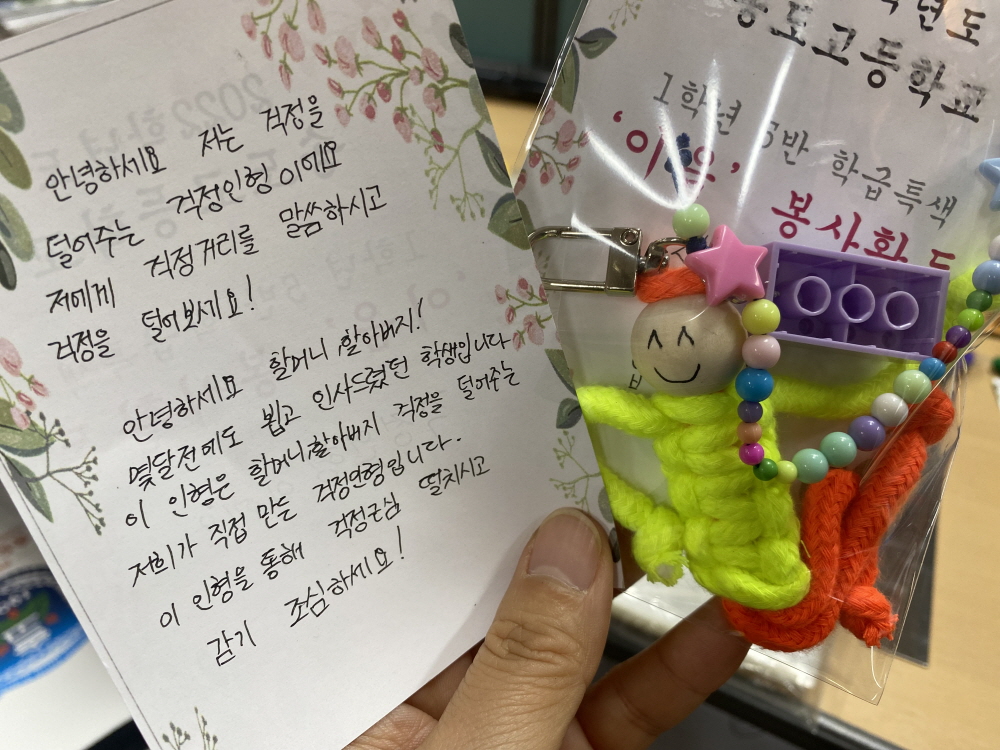 안녕하세요 저는 걱정을
덜어주는 걱정인형이에요
저에게 걱정거리를 말씀하시고
걱정을 덜어보세요!
안녕하세요 할머니, 할아버지!
몇달전에도 뵙고 인사드렸던 학생입니다
이 인형은 할머니, 할아버지 걱정을 덜어주는
저희가 직접 만든 걱정인형입니다.
이 인형을 통해 걱정근심 떨치시고
감기 조심하세요!
년도
고등학교
1학년 반 학급특색
봉사활동